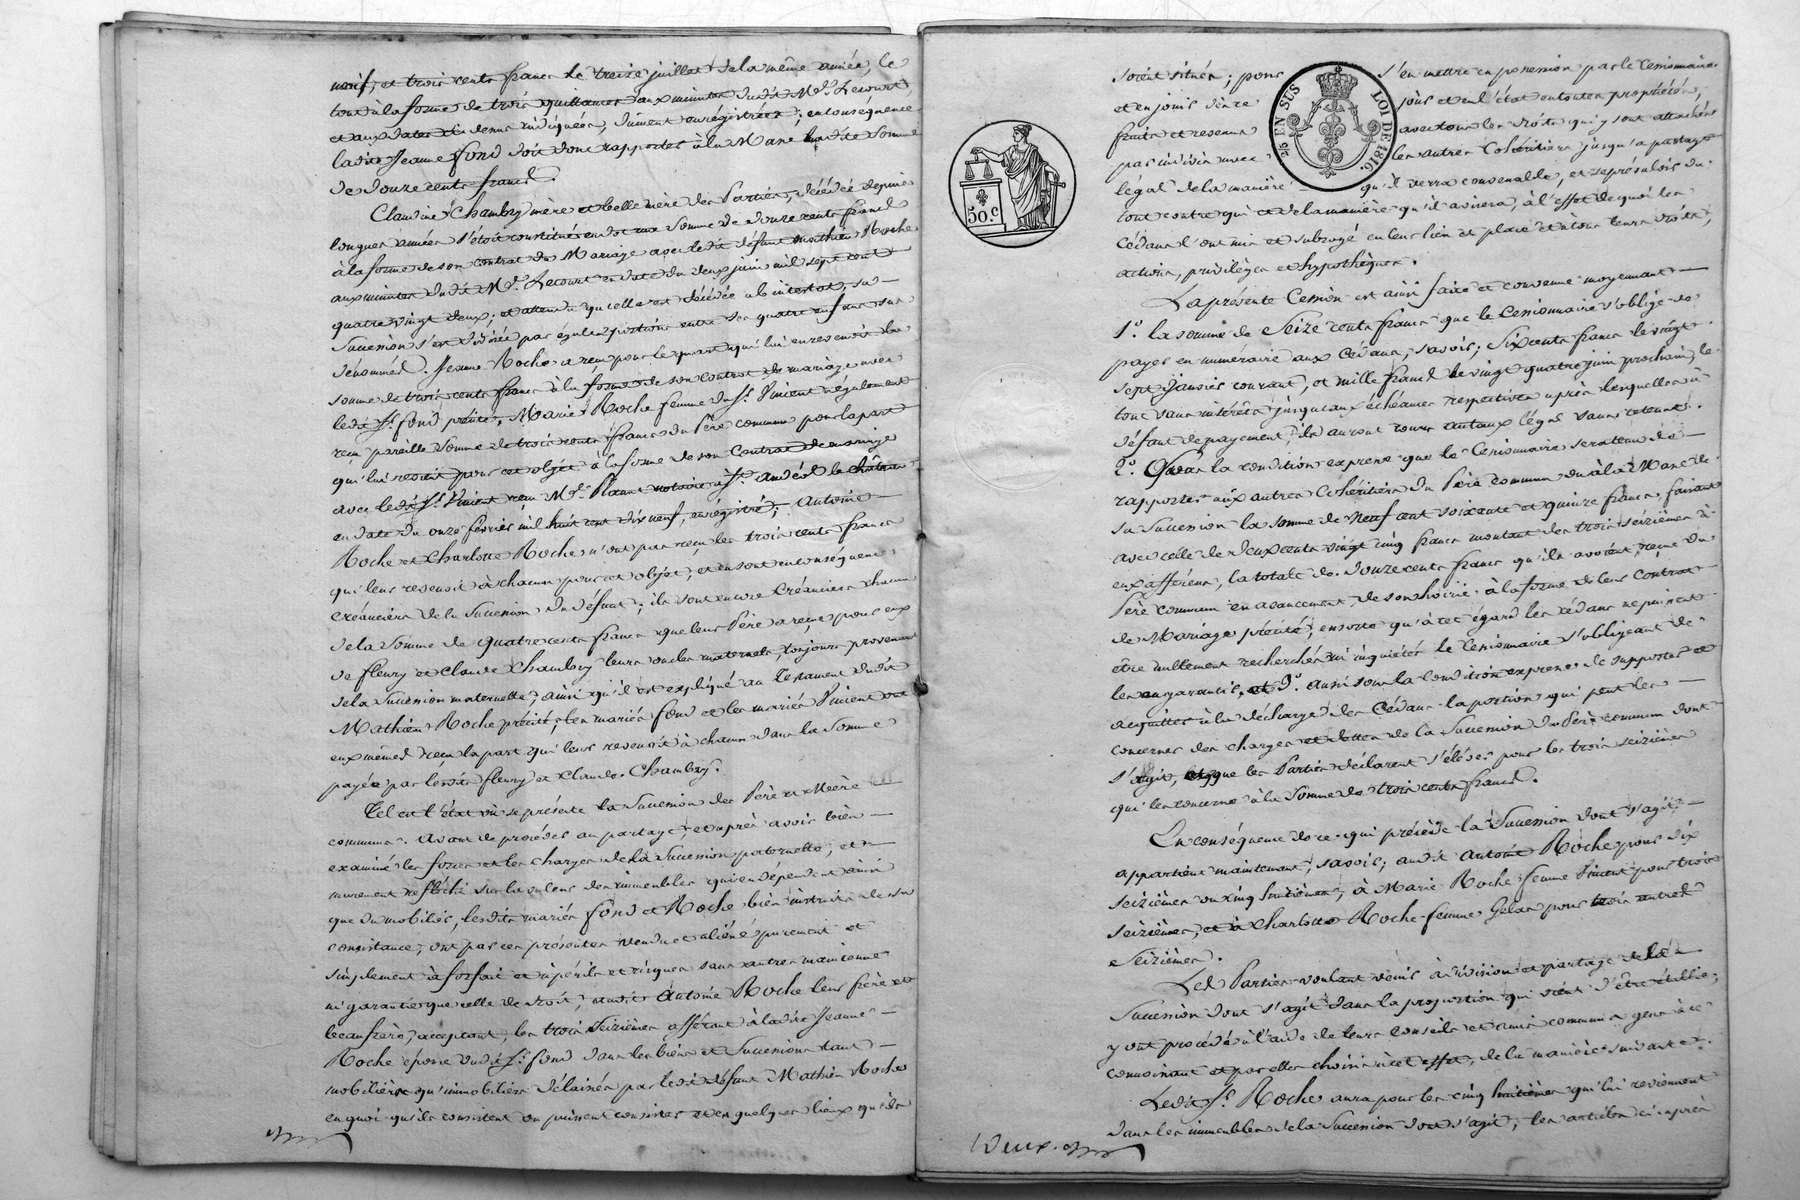 neuf, et trois cents francs le treize juillet de la même année, le
tout à la forme de trois quittances aux minutes dudit Me. Lecourt,
et aux dates ci dessus indiquées, dûment enrégistrées; en conséquence
ladite Jeanne fond doit donc rapporter à la Masse ladite somme
de douze cents francs.
Claudine Chambry mère et belle mère des Parties, décédée depuis
longues années s'étoit constituée en dot une somme de douze cents francs
à la forme de son contrat de Mariage avec ledit défunt Mathieu Roche
aux minutes dudit Me. Lecourt en date du deux juin mil sept cent
quatre vingt deux; et attendu qu'elle est décédée ab intestat, sa
succession s'est divisée par égales portions entre ses quatre enfans sus
dénommés. Jeanne Roche a reçu pour le quart qui lui en revenoit la
somme de trois cents francs à la forme de son contrat de mariage avec
ledit Sr. fond précité, Marie Roche femme du Sr. Vincent également
reçu pareille somme de trois cents francs du Père commun pour la part
qui lui revenoit pour cet objet à la forme de son Contrat de mariage
avec ledit Sr. Vincent, reçu Me. notaire à St. andéol le château
en date du onze février mil huit cent dix neuf, enrégistré; Antoine
Roche et Charlotte Roche n'ont pas reçu les trois cents francs
qui leur revenoit à chacun pour cet objet, et en sont en conséquence
créanciers de la Succession du défunt; ils sont encore Créanciers chacun
de la somme de quatre cents francs que leur Père a reçue pour eux
de fleury et Claude Chambry leurs oncles maternels, toujours provenant
de la succession maternelle, ainsi qu'il est expliqué au testament dudit
Mathieu Roche précité; les mariés fond et les mariés Vincent ont
eux mêmes reçu la part qui leur revenoit à chacun dans la somme
payée par lesdits fleury et Claude Chambry.
Tel est l'état où se présente la succession des Père et Mère
communs. Avant de procéder au partage, et après avoir bien
examiné les forces et les charges de la Succession paternelle, et
murement réfléchi sur la valeur des immeubles qui en dépendent ainsi
que du mobilier, lesdits mariés fond et Roche bien instruits de sa
consistance, ont par ces présentes vendu et aliéné purement et
simplement à forfait et à périls et risques sans autre maintenue
ni garantie que celle de droit, audit Antoine Roche leur frère et
beaufrère, acceptant, les trois seizièmes afférant à ladite Jeanne
Roche épouse dudit Sr. fond dans les biens et Successions tant
mobilière qu'immobilière délaissés par ledit défunt Mathieu Roche
en quoi qu'ils consistent ou puissent consister et en quelques lieux qu'ils
soient situés; pour s'en mettre en possession par le Cessionnaire
et en jouir dès ce jour et en l'état en toute propriété,
fruits et revenus avec tous les droits qui y sont attachés
par indivis avec les autres Cohéritiers jusqu'à partage
légal de la manière qu'il verra convenable, et se prévaloir du
tout contre qui et de la manière qu'il avisera, à l'effet de quoi les
Cédans l'ont mis et subrogé en leur lieu et place et à tous leurs droits,
actions, privilèges et hypothèques.
La présente Cession est ainsi faite et convenue moyennant
1o. la somme de Seize cents francs que le Cessionnaire s'oblige de
payer en numéraire aux Cédans, savoir; Six cents francs le vingt
sept Janvier courant, et mille francs le vingt quatre juin prochain, le
tout sans intérêts jusqu'aux échéances respectives après lesquelles à
défaut de payement, ils auront cours au taux légal sans retenue.
2o. Sous la condition expresse que le Cessionnaire sera tenu de
rapporter aux autres Cohéritiers du Père commun ou à la Masse de
sa Succession la somme de Neuf cent soixante et quinze francs, faisant
avec celle de deux cents vingt cinq francs montant des trois seizièmes à
eux afférens, la totale de douze cents francs qu'ils avoient reçue du
Père commun en avancement de son hoirie à la forme de leur Contrat
de Mariage précité, ensorte qu'à cet égard les cédans ne puissent
être nullement recherchés ni inquiétés le Cessionnaire s'obligeant de
les en garantir, et 3o. aussi sous la condition expresse de supporter et
acquitter à la décharge des Cédans la portion qui peut les
concerner des charges et dettes de la Succession du Père commun dont
s'agit, que les Parties déclarent s'élever pour les trois seizièmes
qui les concerne à la somme de trois cents francs.
En conséquence de ce qui précède la Succession dont s'agit
appartient maintenant, savoir; audit Antoine Roche pour dix
seizièmes ou cinq huitièmes, à Marie Roche femme Vincent pour trois
seizièmes, et à Charlotte Roche femme Gelas pour trois autres
seizièmes.
Les Parties voulant venir à division et partage de la
Succession dont s'agit dans la proportion qui vient d'être établie,
y ont procédé à l'aide de leurs conseils et amis communs gens à ce
connoissant et par elles choisis à cet effet, de la manière suivante.
Ledit Sr. Roche aura pour les cinq huitièmes qui lui reviennent
dans les immeubles de la Succession dont s'agit, les articles ci après
50.c
25 EN SUS
LOI DE 1816.
Deux.